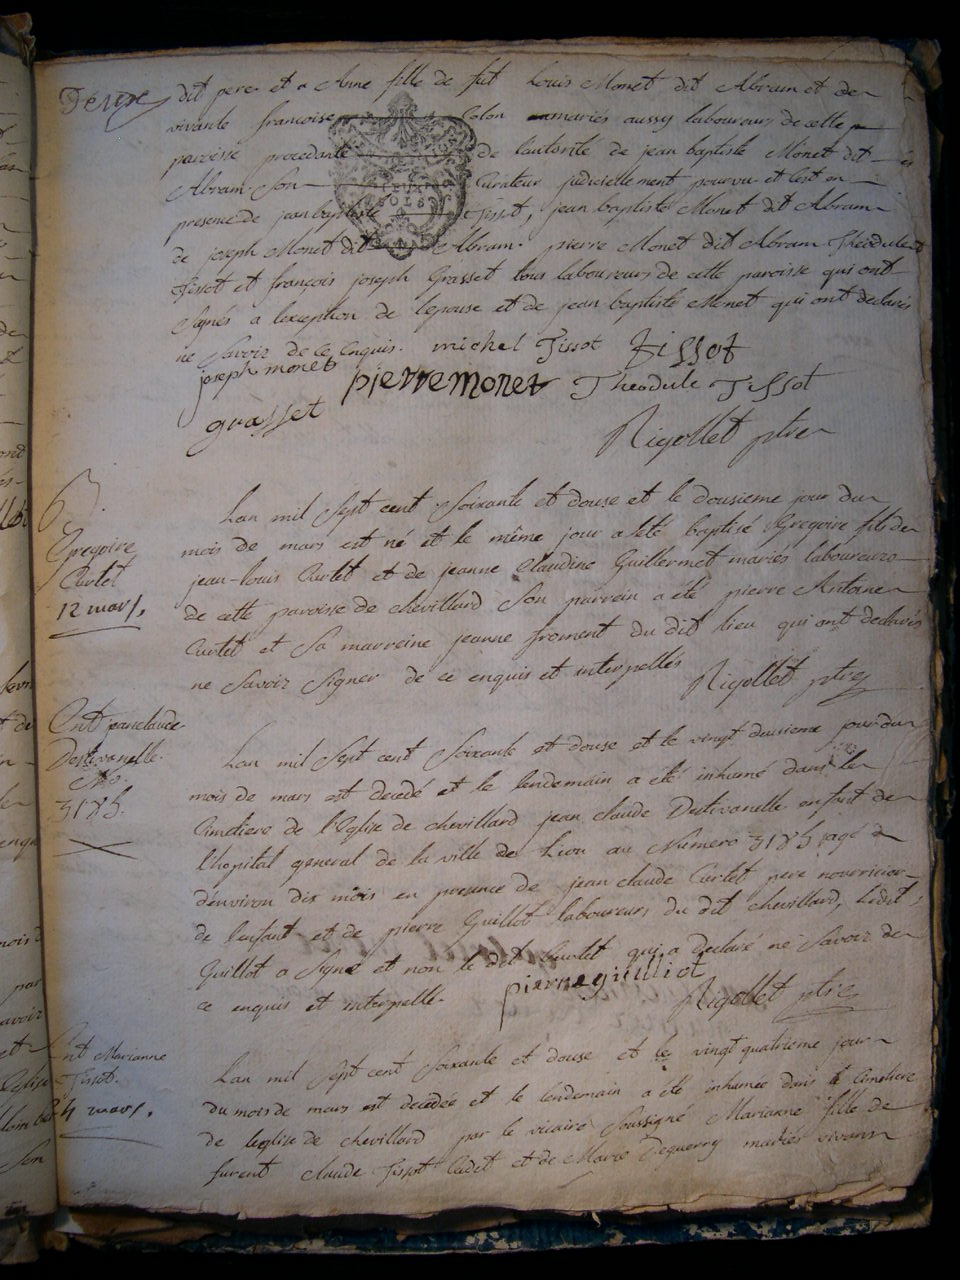 Deux
dit pere et a Anne fille de fut Louis Monet dit Abram et de
vivante francoise Colon mariés aussy laboureurs de cette
paroisse procedante de lautorité de jean baptiste Monet dit
Abram Son Curateur judiciellement pourvu et cest en
presence de jean baptiste Tissot, jean baptiste Monet dit Abram
de joseph Monet dit Abram. pierre Monet dit Abram Théodule
Tissot et françois joseph Grasset tous laboureurs de cette paroisse qui ont
Signés a lexception de lepouse et de jean baptiste Monet qui ont declarés
ne Savoir de ce Enquis. michel Tissot Tissot
joseph monet pierre monet Theodule Tissot
grasset
Rigollet ptre
63
Gregoire
Curtet
12 mars.
Lan mil Sept cent Soixante et douse et le dousieme jour du
mois de mars est né et le même jour a été baptisé Gregoire fils de
jean-louis Curtet et de jeanne Claudine Guillermet mariés laboureurs
de cette paroisse de chevillard Son parrein a été pierre Antoine
Curtet et Sa marreine jeanne froment du dit lieu qui ont declarés
ne Savoir Signer de ce enquis et interpellés Rigollet ptre
Ent jan claude
Destivanelle
No.
3185.
Lan mil Sept cent Soixante et douse et le vingt deusieme jour du
mois de mars est decedé et le lendemain a été inhumé dans le
Cimetiere de l'Eglise de chevillard jean claude Destivanelle enfant de
l'hopital general de la ville de Lion au Numero 3185 agé
d'environ dix mois en presence de jean claude Curtet pere nourricier
de lenfant et de pierre Guillot laboureurs du dit chevillard, ledit
Guillot a Signé et non le dit Curtet qui a declaré ne Savoir de
ce enquis et interpelle. pierre guilliot
Rigollet ptre
Ent Marianne
Tissot.
4 mars.
Lan mil Sept cent Soixante et douse et le vingt quatrieme jour
du mois de mars est decedée et le lendemain a été inhumée dans le Cimetiere
de leglise de chevillard par le vicaire Soussigné Marianne fille de
furent claude Tissot Cadet et de Marie Deguerry mariés vivans